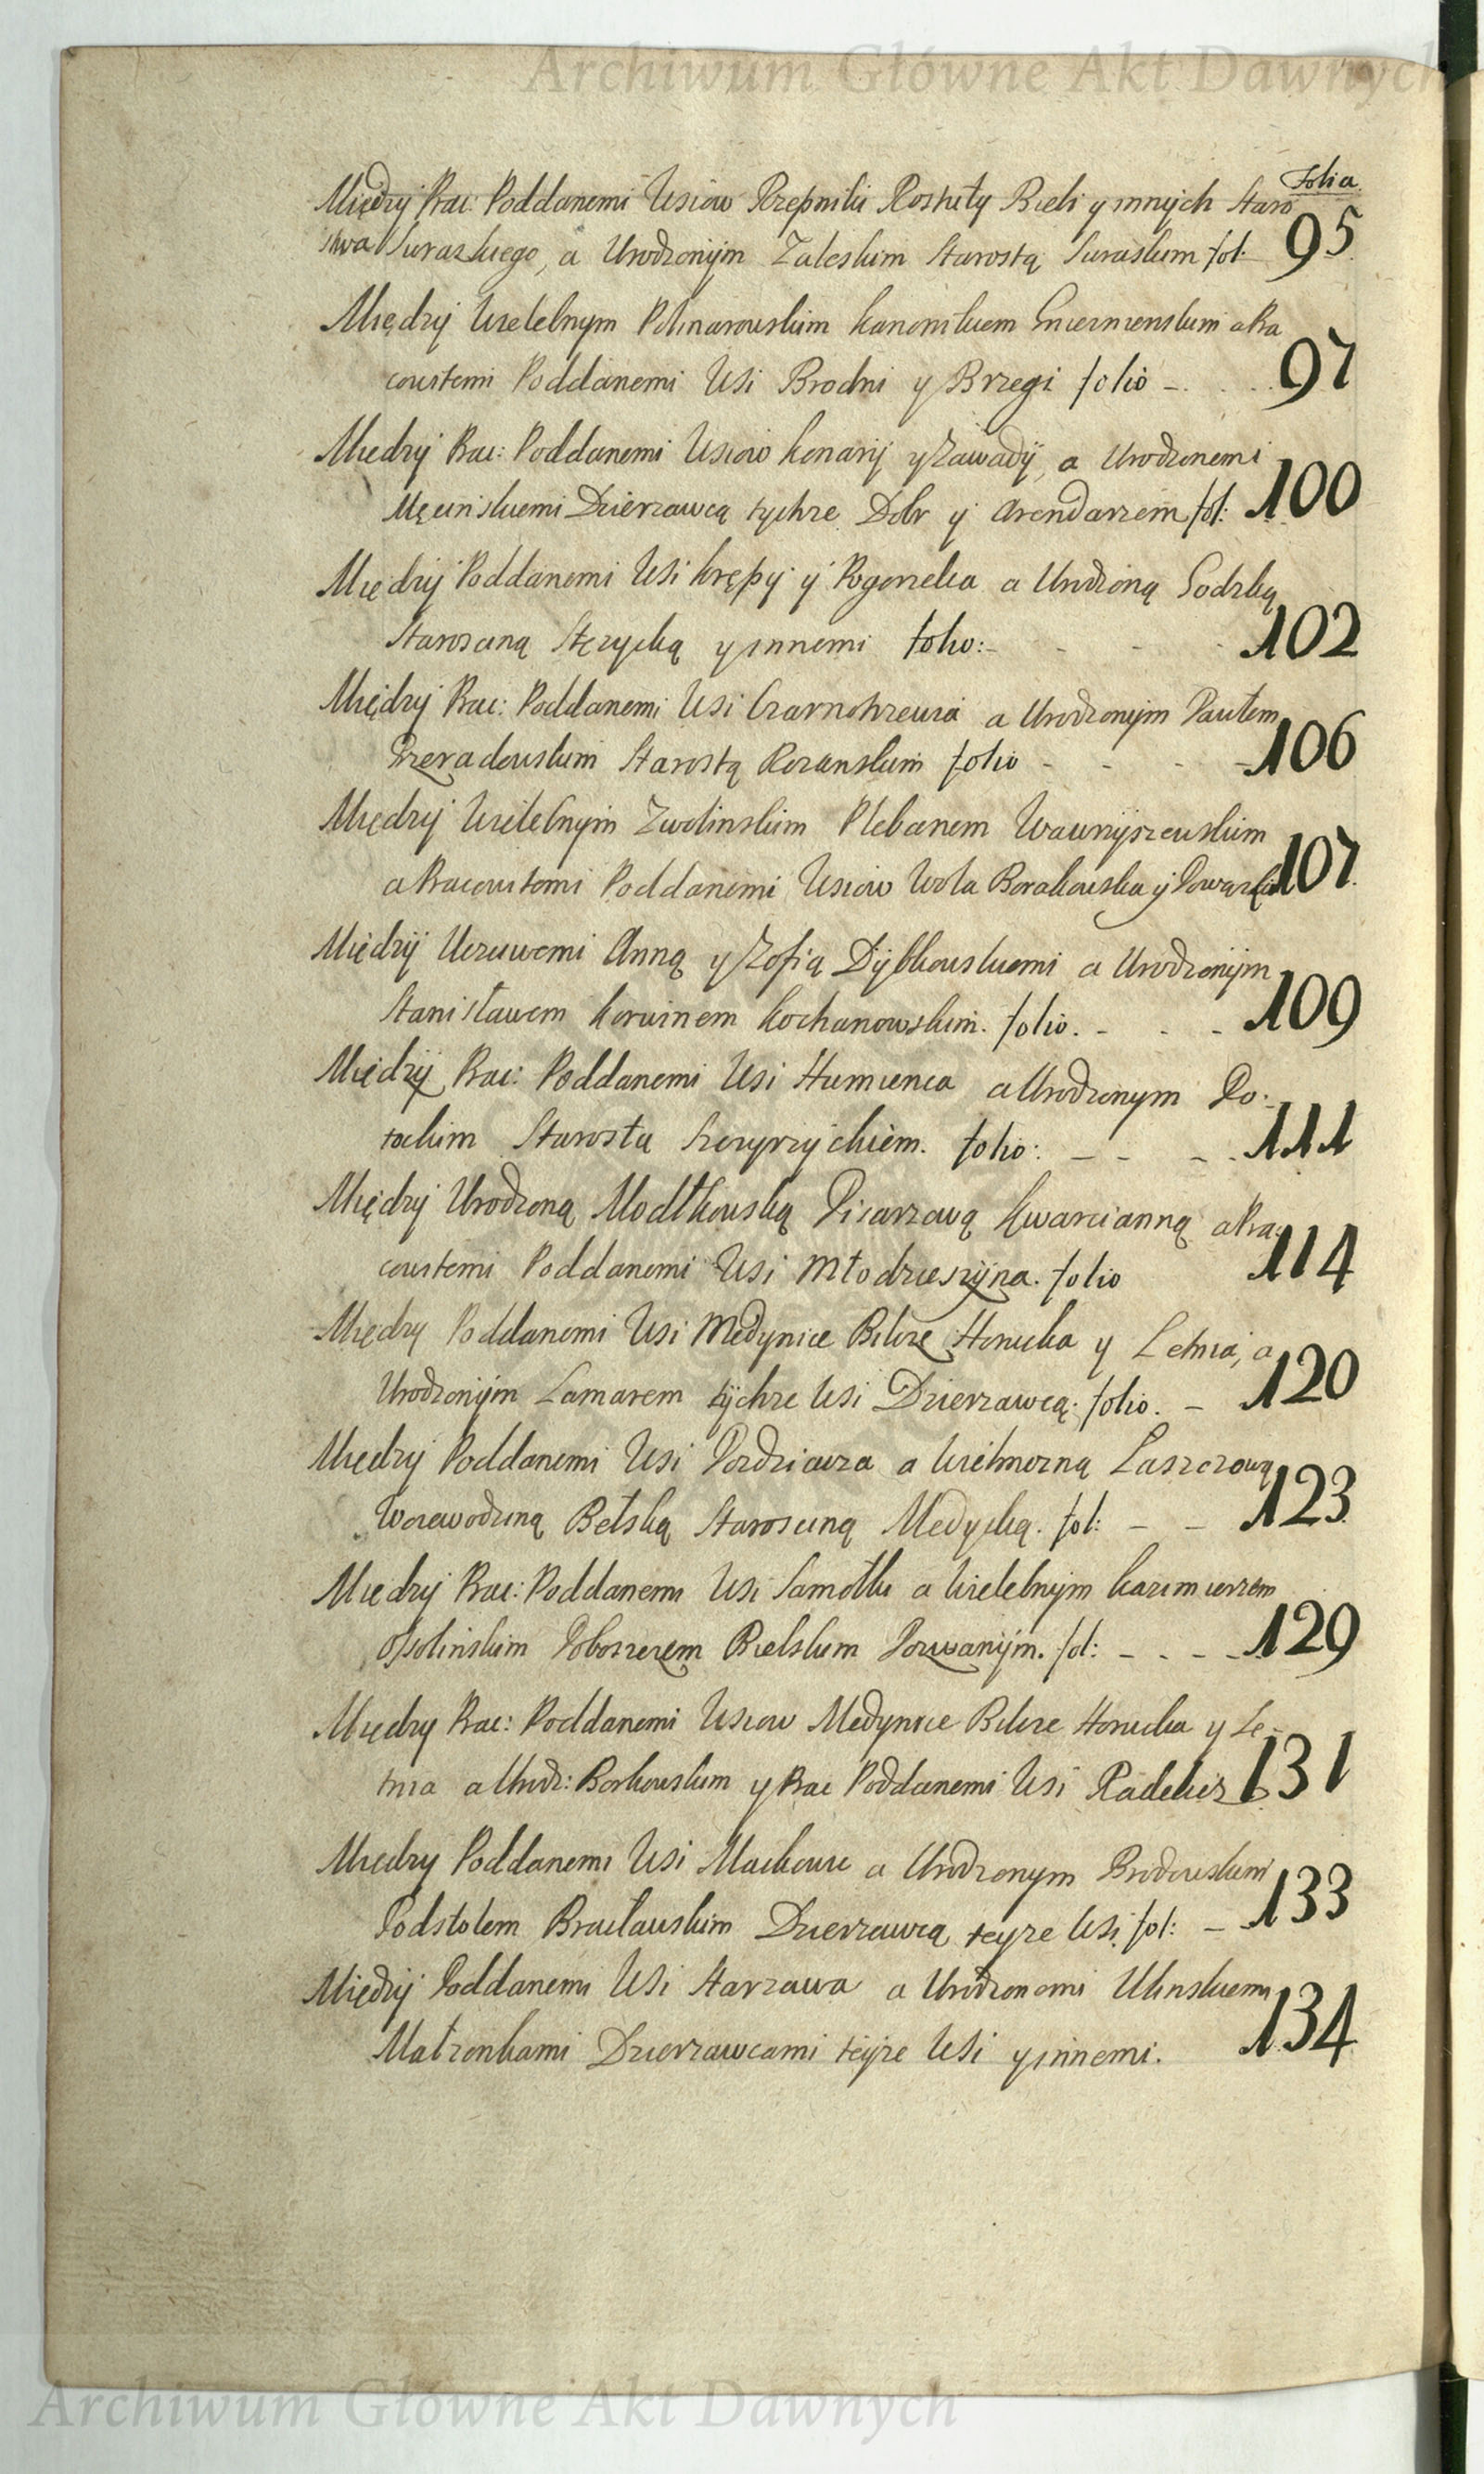 Archiwum Główne Akt Dawnych
Folia
Między Prac: Poddanemi Wsiow Rzepniki Roskuty Bieli y innych Staro
stwa Suraskiego, a Urodzonym Zaleskim Starostą Suraskim fol: 95
Między Wielebnym Kanonikiem a Pra
cowitemi Poddanemi Wsi Brodni y Brzegi folio 97
Miedzy Prac: Poddanemi Wsiow Konary y Zawady, a Urodzonemi
Męcinskiemi Dzierzawcą tychze Dobr y Arendarzem fol: 100
Miedzy Poddanemi Wsi Krępy y Pogorzelca a Urodzoną Godzką
Starosciną Stęzycką y innemi folio: 102
Między Prac: Poddanemi Wsi a Urodzonym Pawłem
Przeradowskim Starostą Rozanskim folio 106
Między Wielebnym Zwolinskim Plebanem Wawrzyszewskim
a Pracowitemi Poddanemi Wsiow Wola Borakowska y Powązki 107
Między Uczciwemi Anną y Zofią Dybkowskiemi a Urodzonym
Stanisławem Korwinem Kochanowskim. folio. 109
Między Prac: Poddanemi Wsi Humienca a Urodzonym Po:
tockim Starosta Szczyrzyckiem. folio: 111
Między Urodzoną Modlkowską Pisarzową Kwarcianną a Pra:
cowitemi Poddanemi Wsi Młodzieszyna. folio 114
Między Poddanemi Wsi Medynice Bilcze Horucka y Letnia, a
Urodzonym Lamarem tychze Wsi Dzierzawcą. folio. 120
Miedzy Poddanemi Wsi Pozdziacza a Wielmozną Laszczową
Woiewodziną Bełską Starosciną Medycką. fol: 123
Miedzy Prac: Poddanemi Wsi Samołki a Wielebnym Kazimierzem
Ossolinskim Proboszczem Bielskim Pozwanym. fol: 129
Miedzy Prac: Poddanemi Wsiow Medynice Bilcze Horucka y Le-
tnia a Urodz: Borkowskim y Prac Poddanemi Wsi Radelicz 131
Miedzy Poddanemi Wsi Mackowic a Urodzonym Brodowskim
Podstolem Bracławskim Dzierzawcą teyze Wsi fol: 133
Między Poddanemi Wsi Starzawa a Urodzonemi Ulinskiemi
Małzonkami Dzierzawcami teyze Wsi y innemi. 134
Archiwum Główne Akt Dawnych